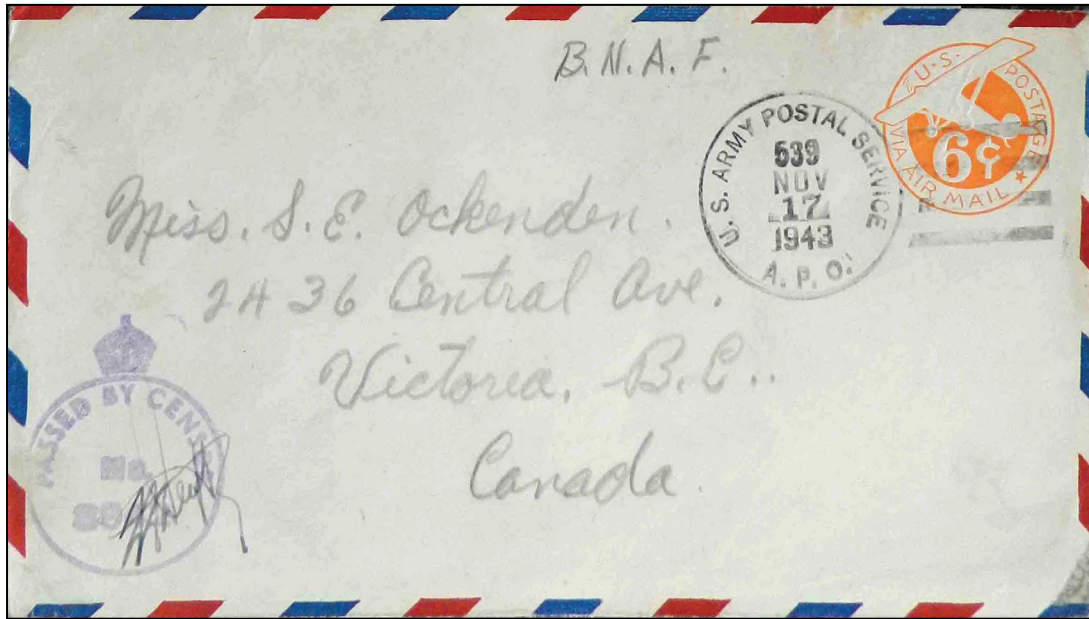 B.N.A.F.
U.S. POSTAGE
VIA AIR MAIL
6¢
U.S. ARMY POSTAL SERVICE
539
NOV
17
1943
A.P.O.
Miss. S.E. Ockenden.
2436 Central Ave.
Victoria, B.C..
Canada.
PASSED BY
No.